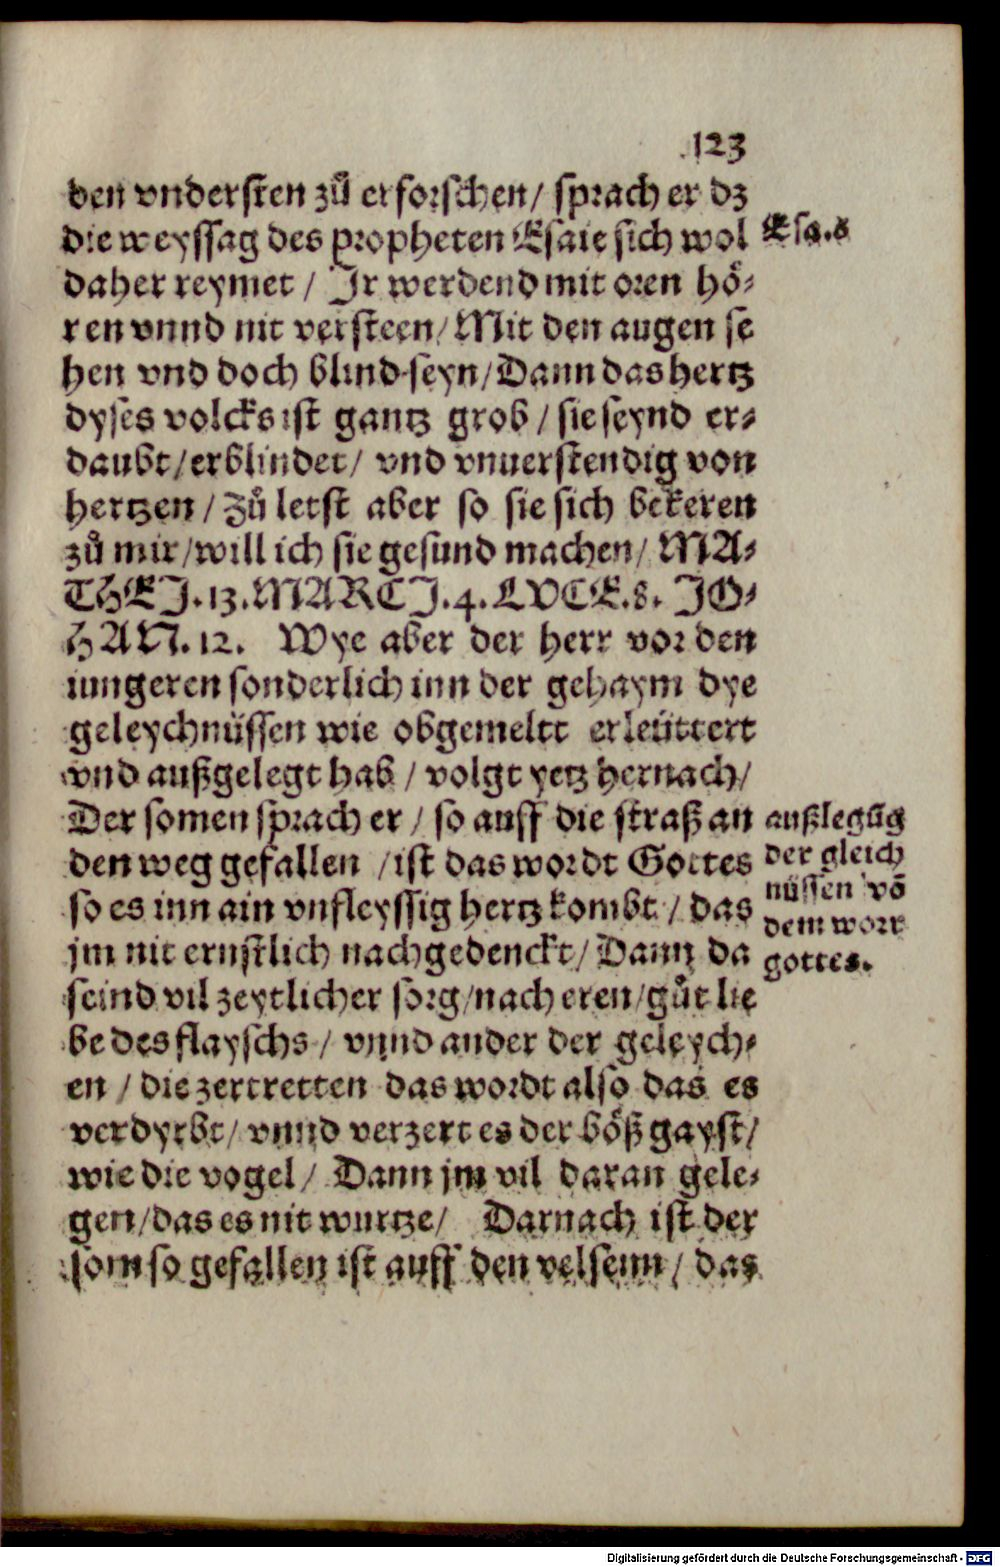 123
den vndersten zů erforschen / sprach er dz
die weyssag des propheten Esaie sich wol
Esa.6
daher reymet / Jr werdend mit oren hö⸗
ren vnnd nit versteen / Mit den augen se
hen vnd doch blind seyn / Dann das hertz
dyses volcks ist gantz grob / sie seynd er⸗
daubt / erblindet / vnd vnuerstendig von
hertzen / Zů letst aber so sie sich bekeren
zů mir / will ich sie gesund machen / MA⸗
THEJ. 13. MARCJ. 4. LVCE. 8. JO⸗
HAN. 12. Wye aber der herr vor den
iungeren sonderlich inn der gehaym dye
geleychnüssen wie obgemeltt erleüttert
vnd außgelegt hab / volgt yetz hernach /
Der somen sprach er / so auff die straß an
den weg gefallen / ist das wordt Gottes
so es inn ain vnfleyssig hertz kombt / das
jm nit ernstlich nachgedenckt / Dann da
seind vil zeytlicher sorg / nach eren / gůt lie
be des flayschs / vnnd ander der geleych⸗
en / die zertretten das wordt also das es
verdyrbt / vnnd verzert es der böß gayst /
wie die vogel / Dann jm vil daran gele⸗
gen / das es nit wurtze / Darnach ist der
som so gefallen ist auff den velsenn / das
außlegūg
der gleich
nüssen vō
dem wort
gottes.
Digitalisierung gefördert durch die Deutsche Forschungsgemeinschaft - DFG